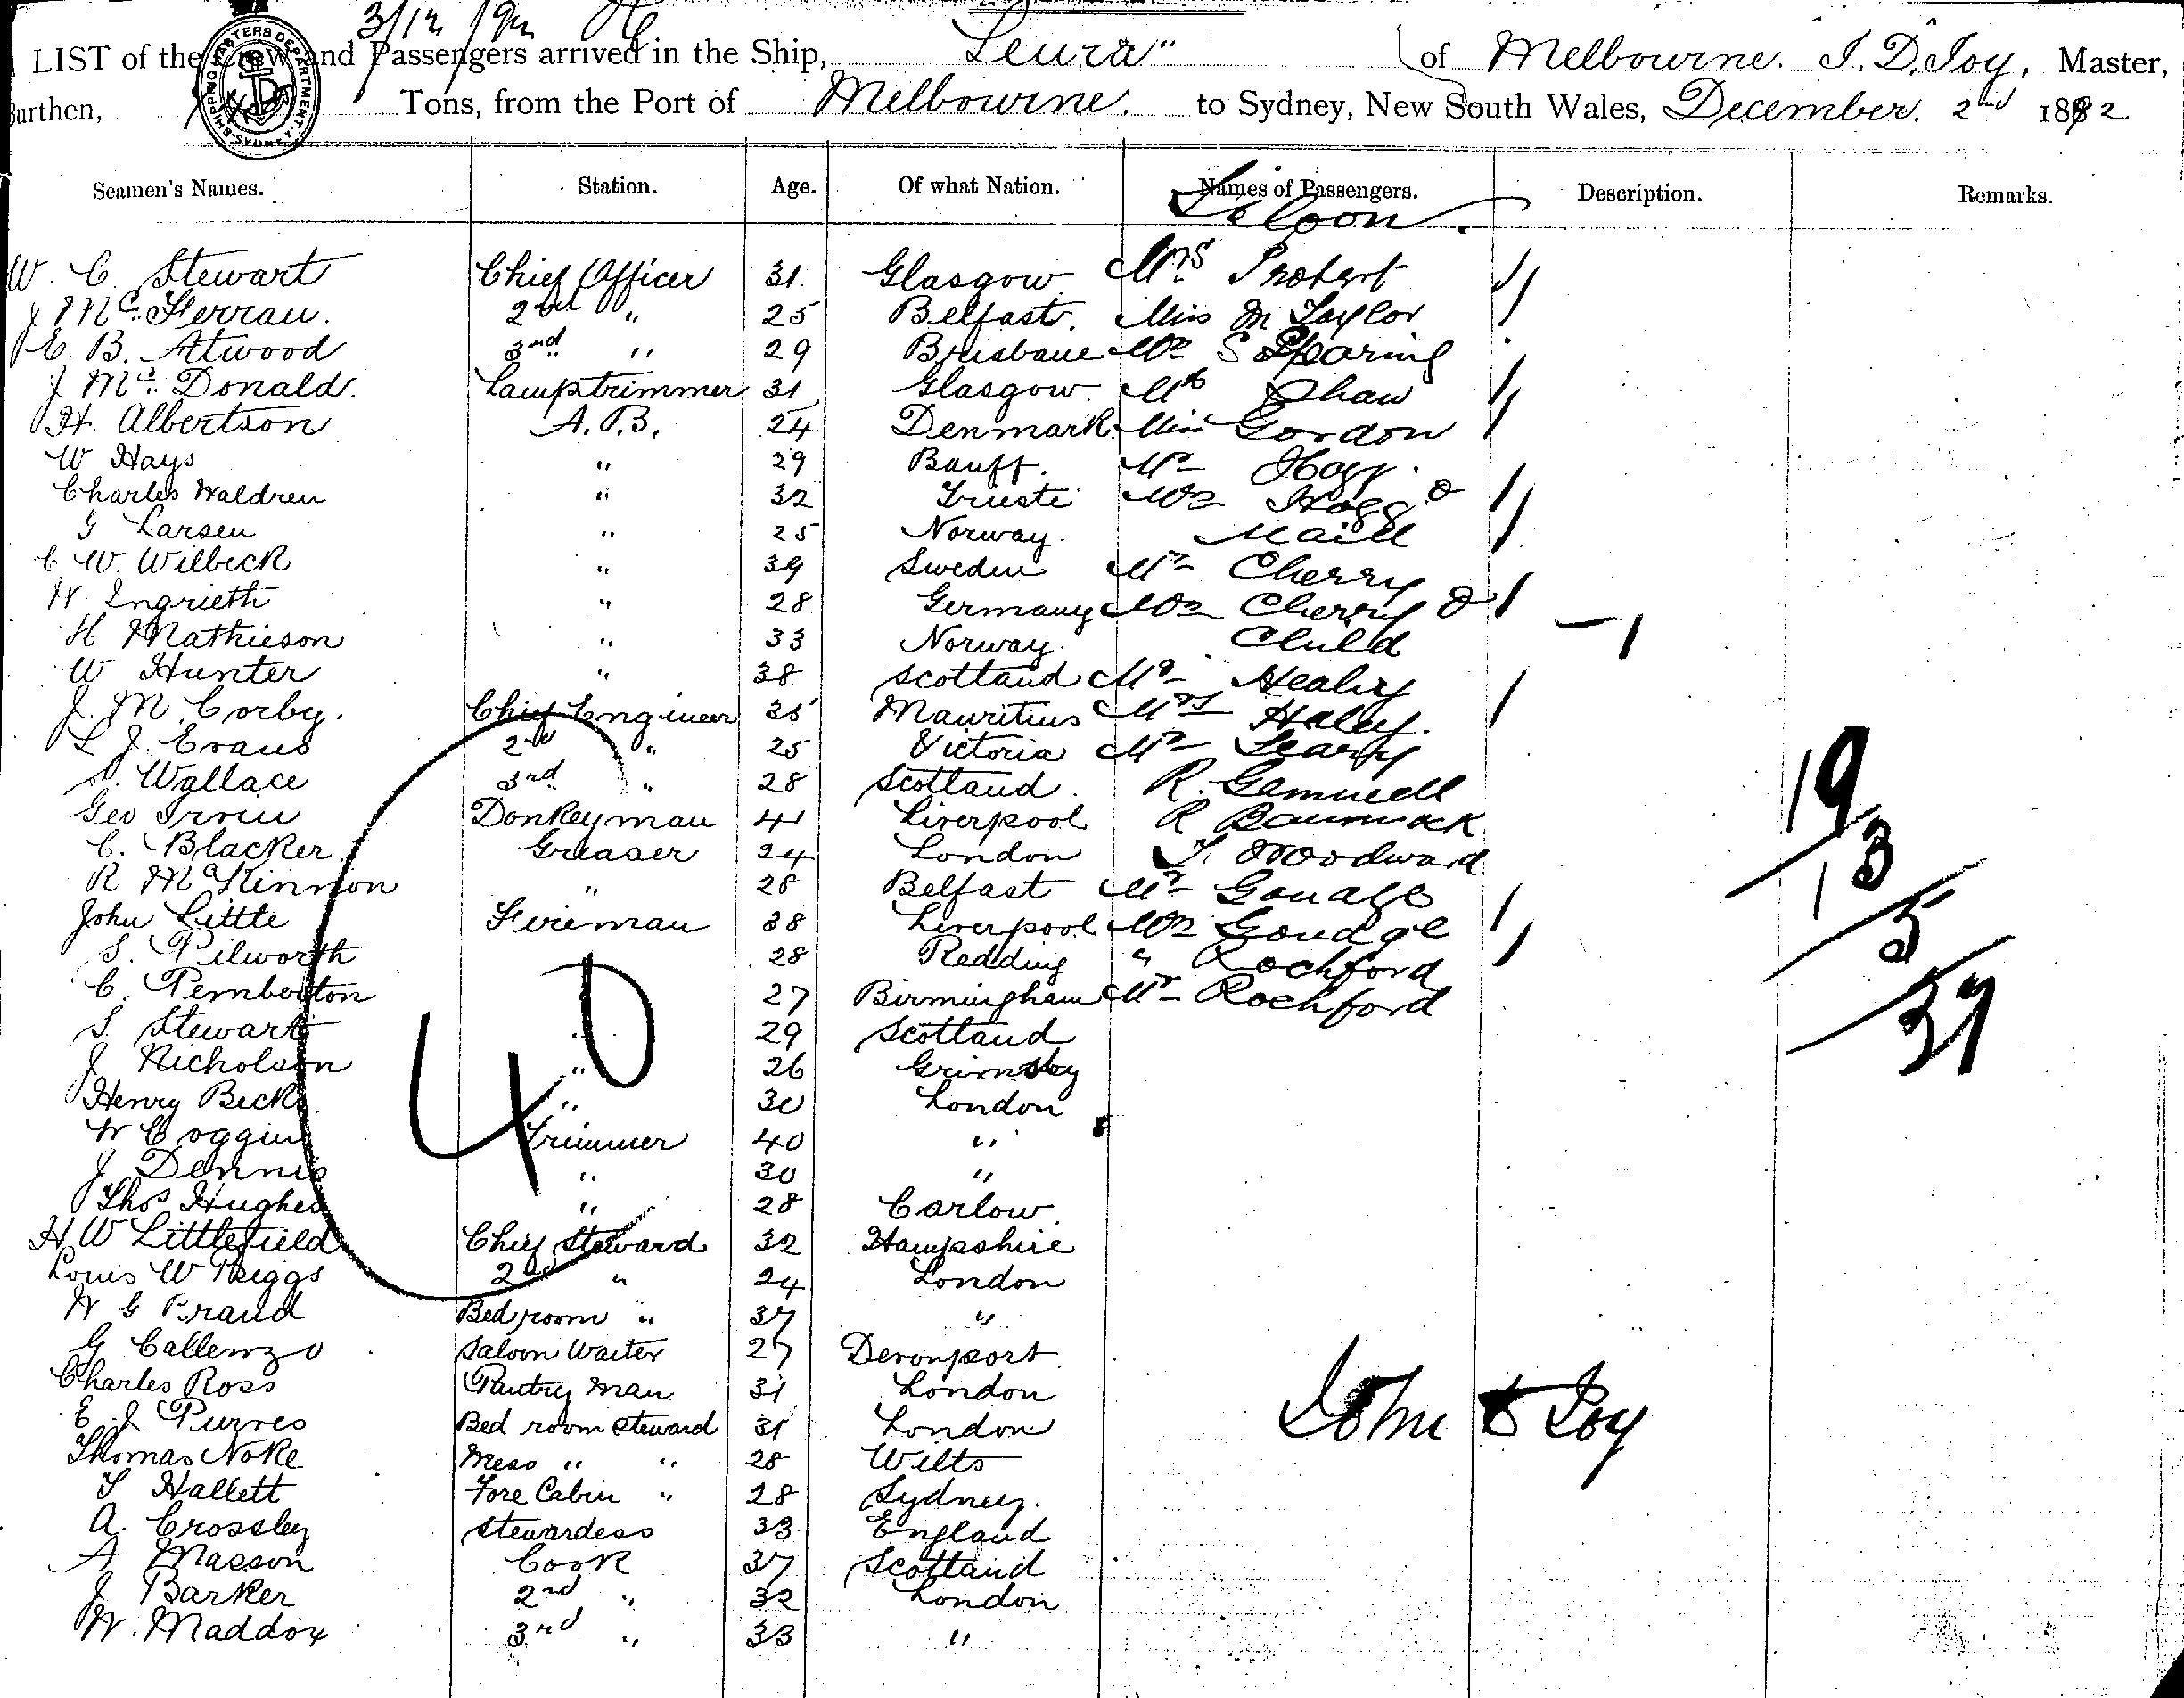 3/12/92
LIST of the Crew and Passengers arrived in the Ship, "Leura" of Melbourne. J. D. Joy, Master,
Burthen, Tons, from the Port of Melbourne. to Sydney, New South Wales, December. 2nd 1892.
Seamen's Names. Station. Age. Of what Nation. Names of Passengers. Description. Remarks.
Saloon
W. C. Stewart Chief Officer 31. Glasgow Mrs Probert
J Mc. Ferran. 2nd " 25 Belfast. Miss M Taylor
E. B. Atwood 3rd " 29 Brisbane Mr S Sparing
J Mc. Donald. Lamptrimmer 31 Glasgow. Mr Shaw
H. Albertson A.B. 24 Denmark. Miss Gordon
W Hays " 29 Banff. Mr Hogg
Charles Waldren " 32 Trieste Mrs Hogg &
G Larsen " 25 Norway. Maid
C W. Wilbeck " 39 Sweden Mr Cherry
W. Ingrieth " 28 Germany Mrs Cherry &
H Mathieson " 33 Norway. Child
W Hunter " 38 Scotland Mr Healey
J. M. Corby. Chief Engineer 35 Mauritius Mrs Haley.
L J. Evans 2nd " 25 Victoria Mr Leary
A. Wallace 3rd " 28 Scotland. R. Gemmell
Geo Irvin Donkeyman 41 Liverpool R
C. Blacker. Greaser 24 London T. Woodward
R McKinnon " 28 Belfast Mr Goudge
John Little Fireman 38 Liverpool Mrs Goudge
S. Pilworth 28 Redding " Rochford
C. Pemberton 27 Birmingham Mr Rochford
S. Stewart " 29 Scotland
J Nicholson " 26 Grimsby
Henry Becks " 30 London
W Coggins Trimmer 40 "
J Dennis " 30 "
Thos Hughes " 28 Carlow.
H. W Littlefield Chief Steward 32 Hampshire
Louis W Briggs 2nd " 24 London
W G Brand Bedroom " 37 "
G Callenzo Saloon Waiter 27 Devonport.
Charles Ross Pantry man 31 London
E J. Purves Bed room steward 31 London
Thomas Noke Mess " " 28 Wilts
T Hallett Fore Cabin " 28 Sydney.
A. Crossley Stewardess 33 England
A Masson Cook 37 Scotland
J Barker 2nd " 32 London
W. Maddox 3rd " 33 "
40
1
19
13
5
37
John D Joy